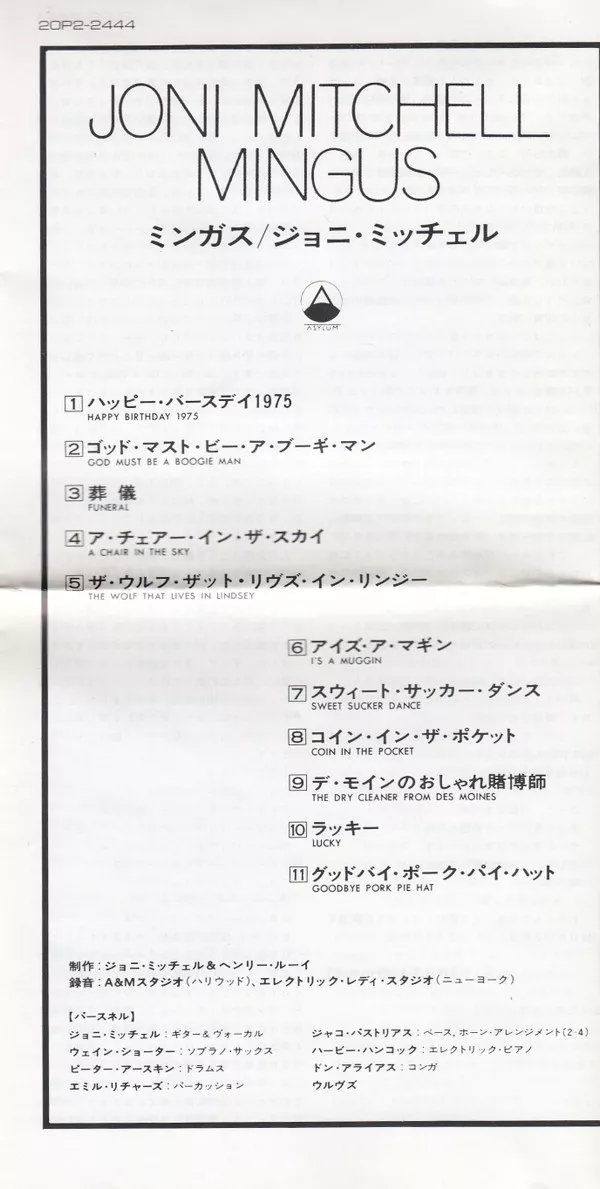 20P2-2444
JONI MITCHELL
MINGUS
ミンガス/ジョニ・ミッチェル
ASYLUM
1 ハッピー・バースデイ1975
HAPPY BIRTHDAY 1975
2 ゴッド・マスト・ビー・ア・ブーギ・マン
GOD MUST BE A BOOGIE MAN
3 葬儀
FUNERAL
4 ア・チェアー・イン・ザ・スカイ
A CHAIR IN THE SKY
5 ザ・ウルフ・ザット・リヴズ・イン・リンジー
THE WOLF THAT LIVES IN LINDSEY
6 アイズ・ア・マギン
I'S A MUGGIN
7 スウィート・サッカー・ダンス
SWEET SUCKER DANCE
8 コイン・イン・ザ・ポケット
COIN IN THE POCKET
9 デ・モインのおしゃれ賭博師
THE DRY CLEANER FROM DES MOINES
10 ラッキー
LUCKY
11 グッドバイ・ポーク・パイ・ハット
GOODBYE PORK PIE HAT
制作：ジョニ・ミッチェル&ヘンリー・ルーイ
録音：A&Mスタジオ(ハリウッド)、エレクトリック・レディ・スタジオ(ニューヨーク)
【パースネル】
ジョニ・ミッチェル：ギター&ヴォーカル
ウェイン・ショーター：ソプラノ・サックス
ピーター・アースキン：ドラムス
エミル・リチャーズ：パーカッション
ジャコ・パストリアス：ベース, ホーン・アレンジメント(2-4)
ハービー・ハンコック：エレクトリック・ピアノ
ドン・アライアス：コンガ
ウルヴズ